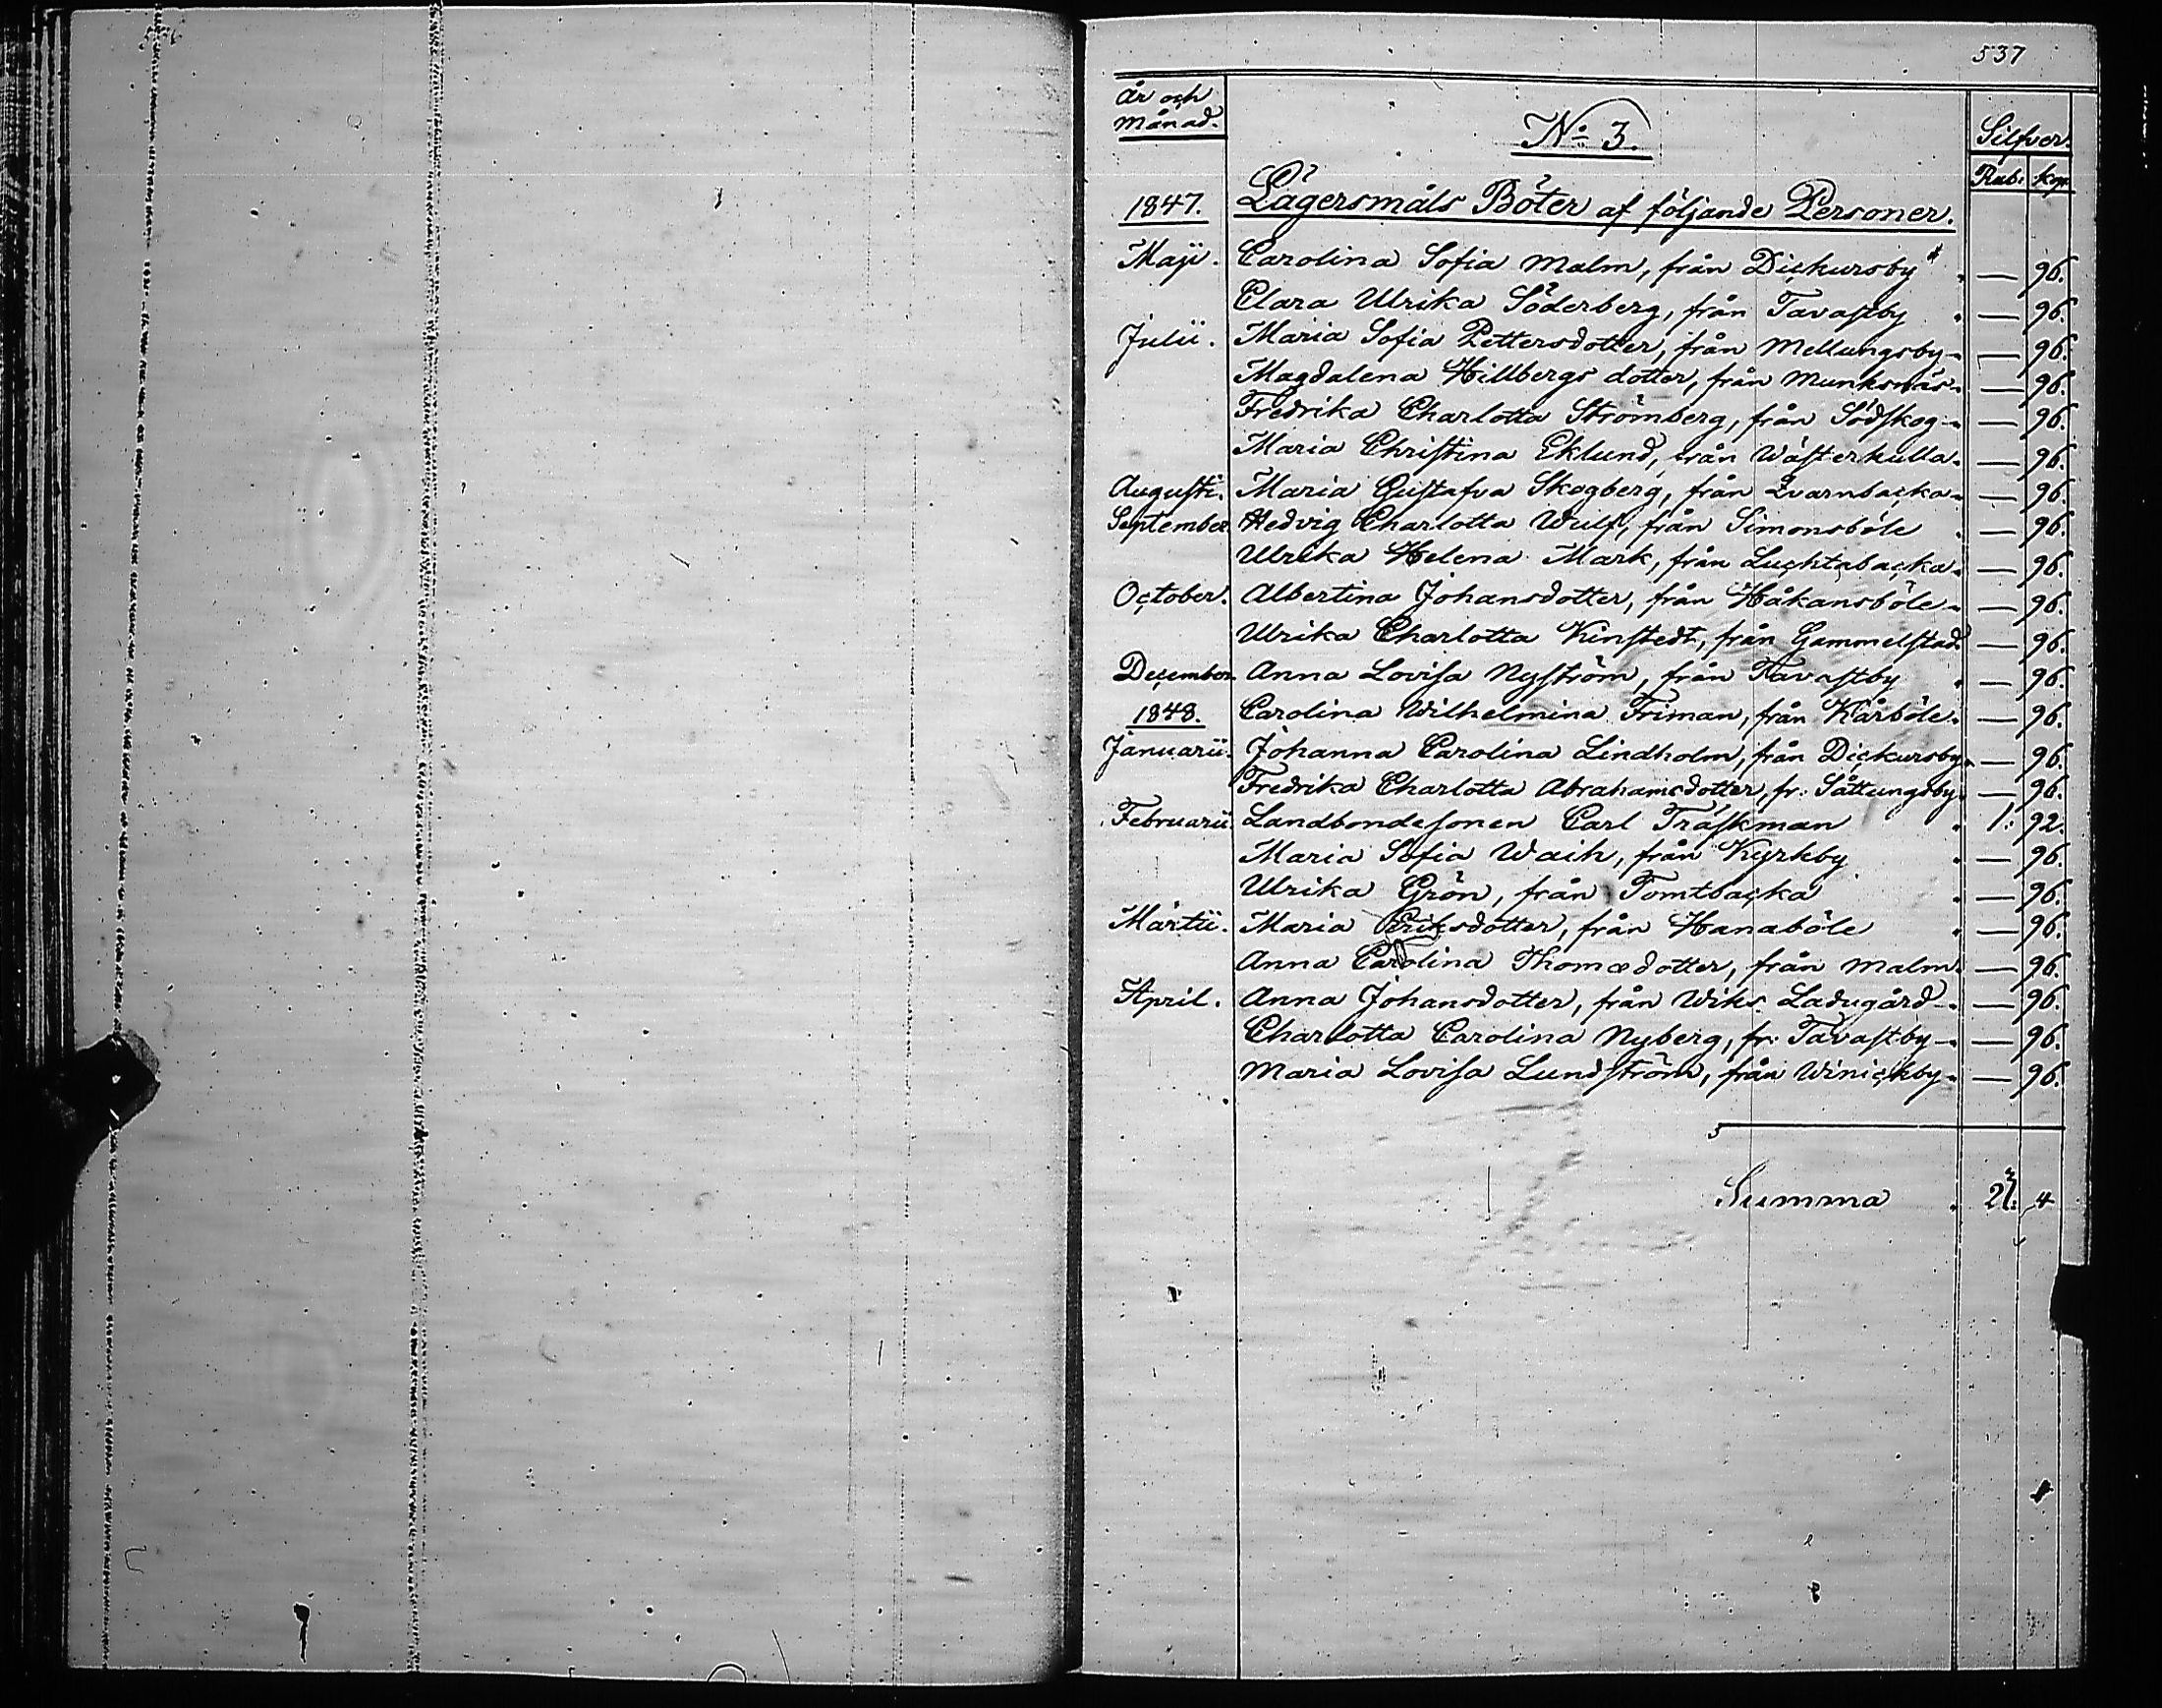 537
År och
Månad.
No 3.
Silfver.
Rub. kop.
1847. Lägersmåls Böter af följande Personer.
Maji. Carolina Sofia Malm, från Dickursby — 96.
Clara Ulrika Söderberg, från Tavastby — 96.
Julii. Maria Sofia Pettersdotter, från Mellungsby — 96.
Magdalena Hillbergs dotter, från Munksnäs — 96.
Fredrika Charlotta Strömberg, från Södskog — 96.
Maria Christina Eklund, från Wästerkulla — 96.
Augusti. Maria Gustafva Skogberg, från Qvarnbacka — 96.
September. Hedvig Charlotta Wulf, från Simonsböle — 96.
Ulrika Helena Mark, från Luchtabacka — 96.
October. Albertina Johansdotter, från Håkansböle — 96.
Ulrika Charlotta Kinstedt, från Gammelstad — 96.
December. Anna Lovisa Nyström, från Tavastby — 96.
1848. Carolina Wilhelmina Friman, från Kårböle — 96.
Januarii. Johanna Carolina Lindholm, från Dickursby — 96.
Fredrika Charlotta Abrahamsdotter, fr: Såttungsby — 96.
Februarii. Landbondesonen Carl Träskman 1: 92.
Maria Sofia Waih, från Kyrkby — 96.
Ulrika Grön, från Tomtbacka — 96.
Martii. Maria Eriksdotter, från Hanaböle — 96.
Anna Carolina Thomædotter, från Malm — 96.
April. Anna Johansdotter, från Wiks Ladugård — 96.
Charlotta Carolina Nyberg, fr: Tavastby — 96.
Maria Lovisa Lundström, från Winickby — 96.
Summa 4